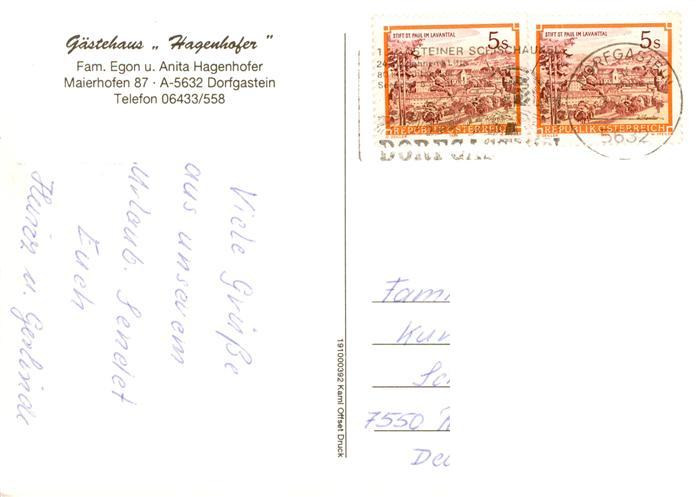 Gästehaus „ Hagenhofer "
Fam. Egon u. Anita Hagenhofer
Maierhofen 87 · A-5632 Dorfgastein
Telefon 06433/558
Viele Grüße
aus unserem
Urlaub. Sendet
Euch
Heinz u. Gerlinde
191000392 Kaml Offset Druck
STIFT ST. PAUL IM LAVANTTAL
5s
REPUBLIK ÖSTERREICH
STIFT ST. PAUL IM LAVANTTAL
5s
REPUBLIK ÖSTERREICH
GASTEINER SCHISCHAUKEL
DORFGASTEIN
5632
Fami
Kur
7550